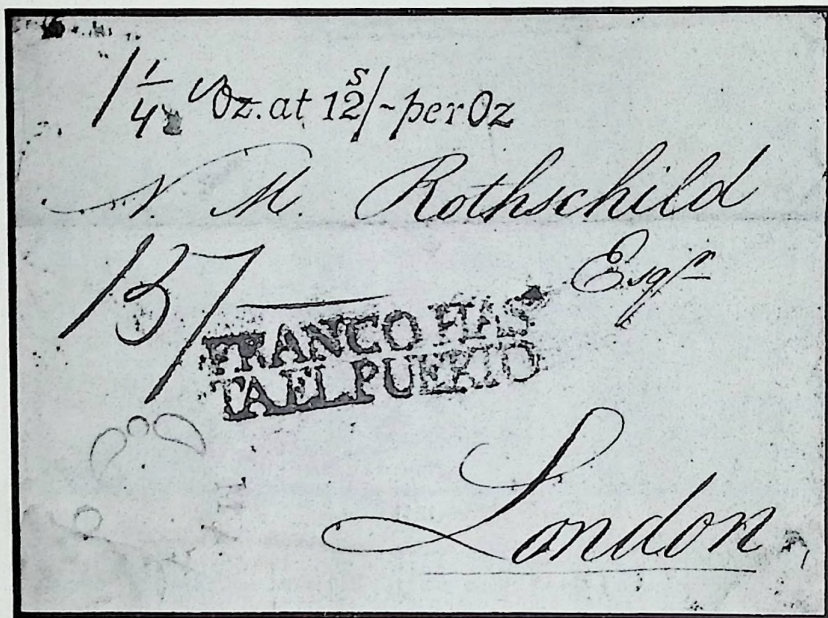 1 1/4 Oz. at 12s/- per Oz
N. M. Rothschild
Esqr
15/
FRANCO HAS
TA EL PUERTO
London